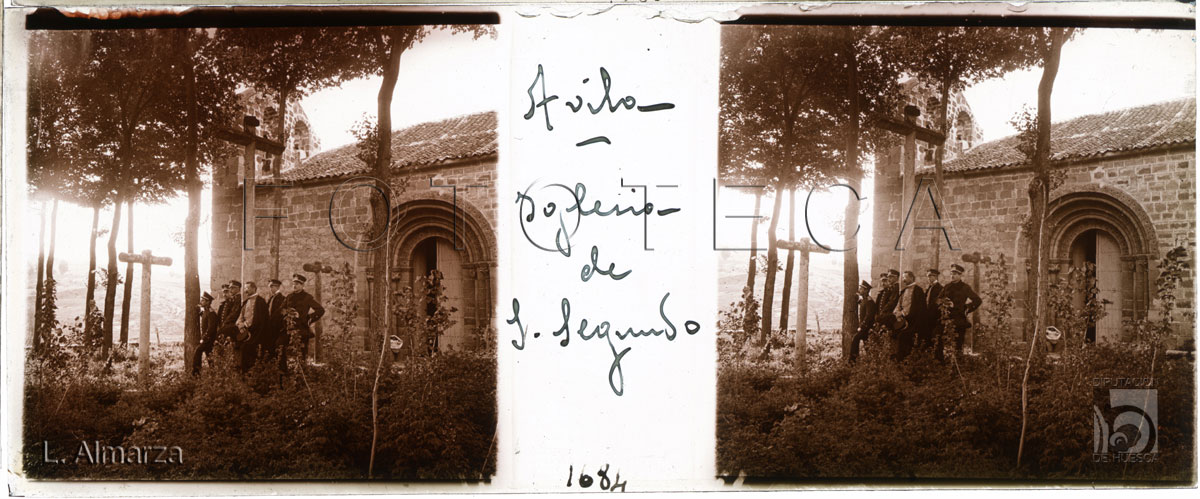 Avila
Iglesia
de
S. Segundo
1684
FOTOTECA
L. Almarza
DIPUTACIÓN
DE HUESCA